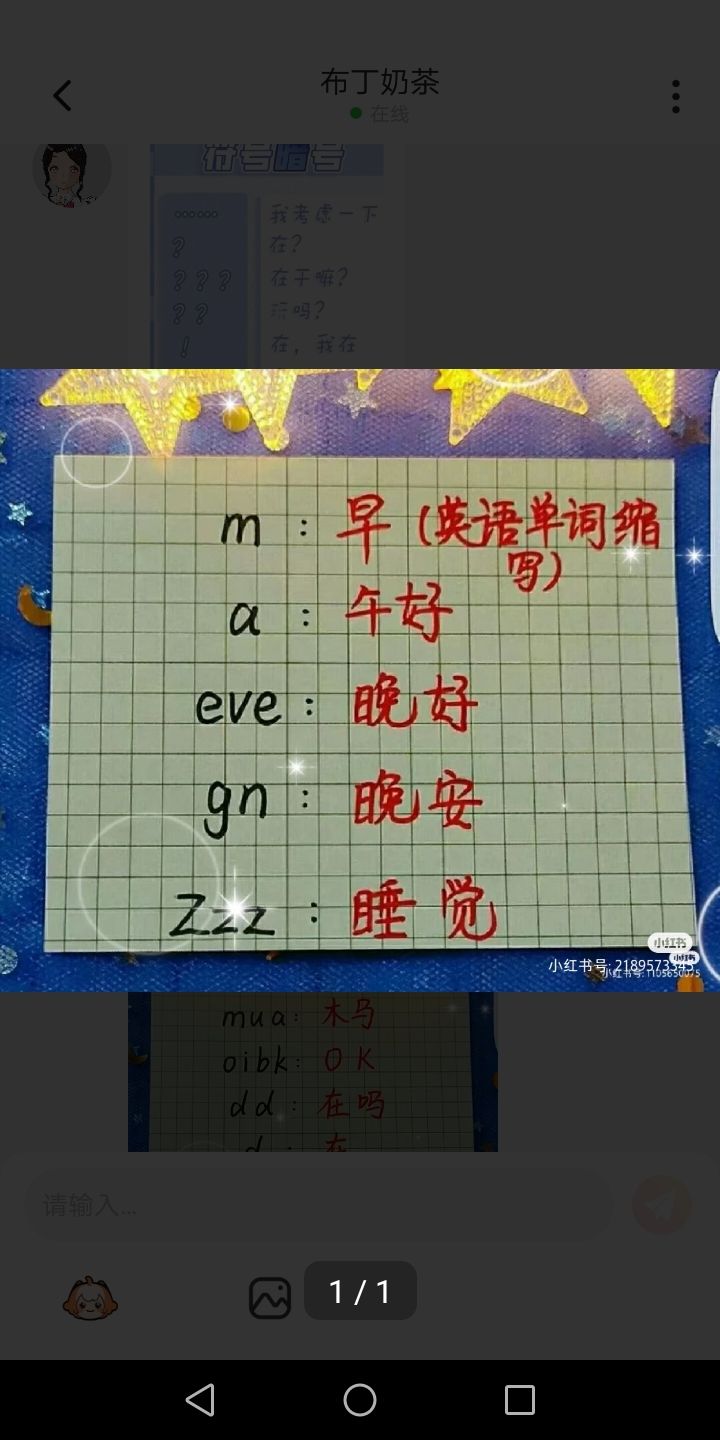 布丁奶茶
在线
符号暗号
······ 我考虑一下
? 在?
? ? ? 在干嘛?
? ? 玩吗?
! 在，我在
m : 早 (英语单词缩
写)
a : 午好
eve : 晚好
gn : 晚安
zzz : 睡觉
小红书
小红书
小红书号: 2189573345
小红书号: 1105650075
mua: 木马
oibk: OK
dd : 在吗
d : 在
请输入...
1 / 1